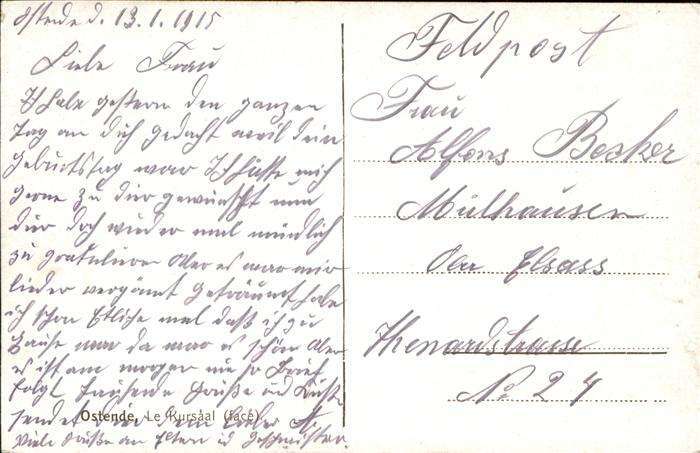 Ostende d. 13.1.1915
Liebe Frau
Ich habe gestern den ganzen
Tag an dich gedacht weil dein
Geburtstag war Ich hätte mich
gerne zu dir gewünscht um
dir doch wieder mal mündlich
zu gratulieren Aber es war mir
leider vergönt Geträumt habe
ich schon Etliche mal daß ich zu
Hause war da war es schön Aber
es ist am morgen Brief
folgt Tausend Grüße und Küße
sendet dir dein lieber A
Viele Grüße an Eltern u Geschwister.
Ostende, Le Kursaal (face)
Feldpost
Frau
Alfons Becker
Mülhausen
Elsass
Thenardstrasse
No 24